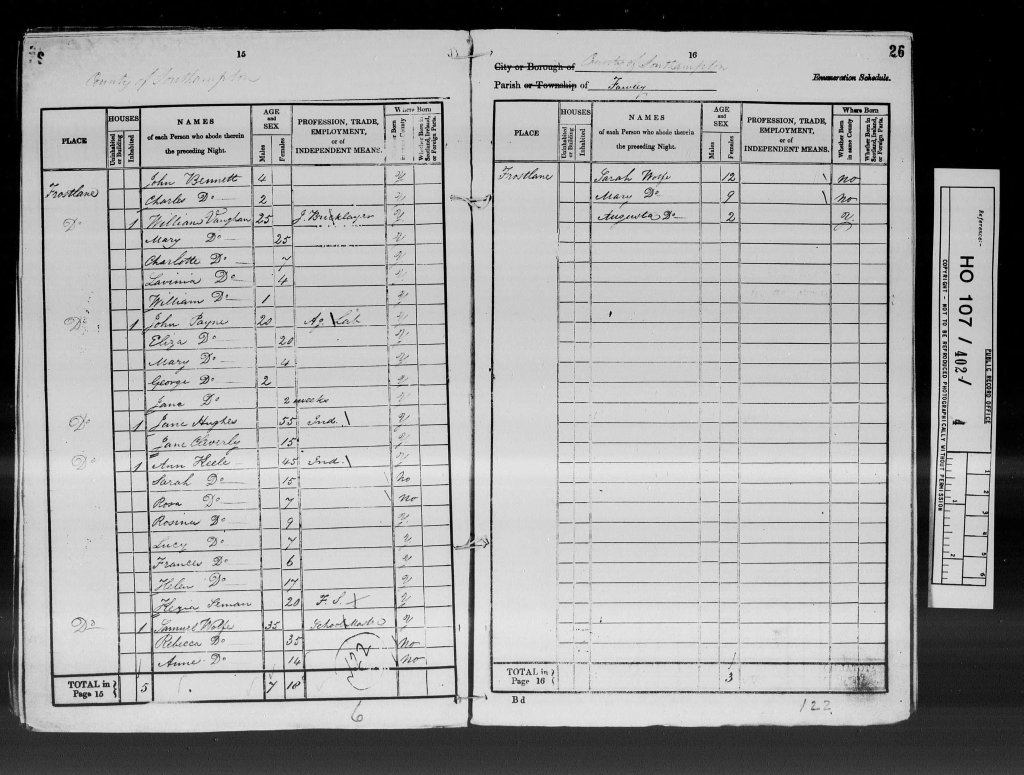 15
County of Southampton
PLACE | HOUSES Uninhabited or Building | Inhabited | NAMES of each Person who abode therein the preceding Night. | AGE and SEX Males | Females | PROFESSION, TRADE, EMPLOYMENT, or of INDEPENDENT MEANS. | Where Born | Whether Born in Scotland, Ireland, or Foreign Parts.
Frostlane John Bennett 4 y
Charles Do 2 y
Do 1 William Vaughan 25 J. Bricklayer y
Mary Do 25 y
Charlotte Do 7 y
Lavinia Do 4 y
William Do 1 y
Do 1 John Payne 20 Ag Lab y
Eliza Do 20 y
Mary Do 4 y
George Do 2 y
Jane Do 2 weeks y
Do 1 Jane Hughes 55 Ind. y
Jane 15 y
Do 1 Ann Heele 45 Ind. y
Sarah Do 15 No
Rosa Do 7 No
Rosina Do 9 y
Lucy Do 7 y
Frances Do 6 y
Helen Do 17 y
Kezia Seman 20 F. S. y
Do 1 Samuel Wolfe 35 School Master y
Rebecca Do 35 No
Anne Do 14 No
122
TOTAL in Page 15 5 7 18
6
16
26
City or Borough of County of Southampton
Parish or Township of Fawley
Enumeration Schedule.
PLACE | HOUSES Uninhabited or Building | Inhabited | NAMES of each Person who abode therein the preceding Night. | AGE and SEX Males | Females | PROFESSION, TRADE, EMPLOYMENT, or of INDEPENDENT MEANS. | Where Born Whether Born in same County | Whether Born in Scotland, Ireland, or Foreign Parts.
Frostlane Sarah Wolfe 12 No
Mary Do 9 No
Augusta Do 2 y
TOTAL in Page 16 3
B d
122
Reference:-
HO 107 / 402/ 4
PUBLIC RECORD OFFICE
COPYRIGHT - NOT TO BE REPRODUCED PHOTOGRAPHICALLY WITHOUT PERMISSION
1 2 3 4 5 6
1 2